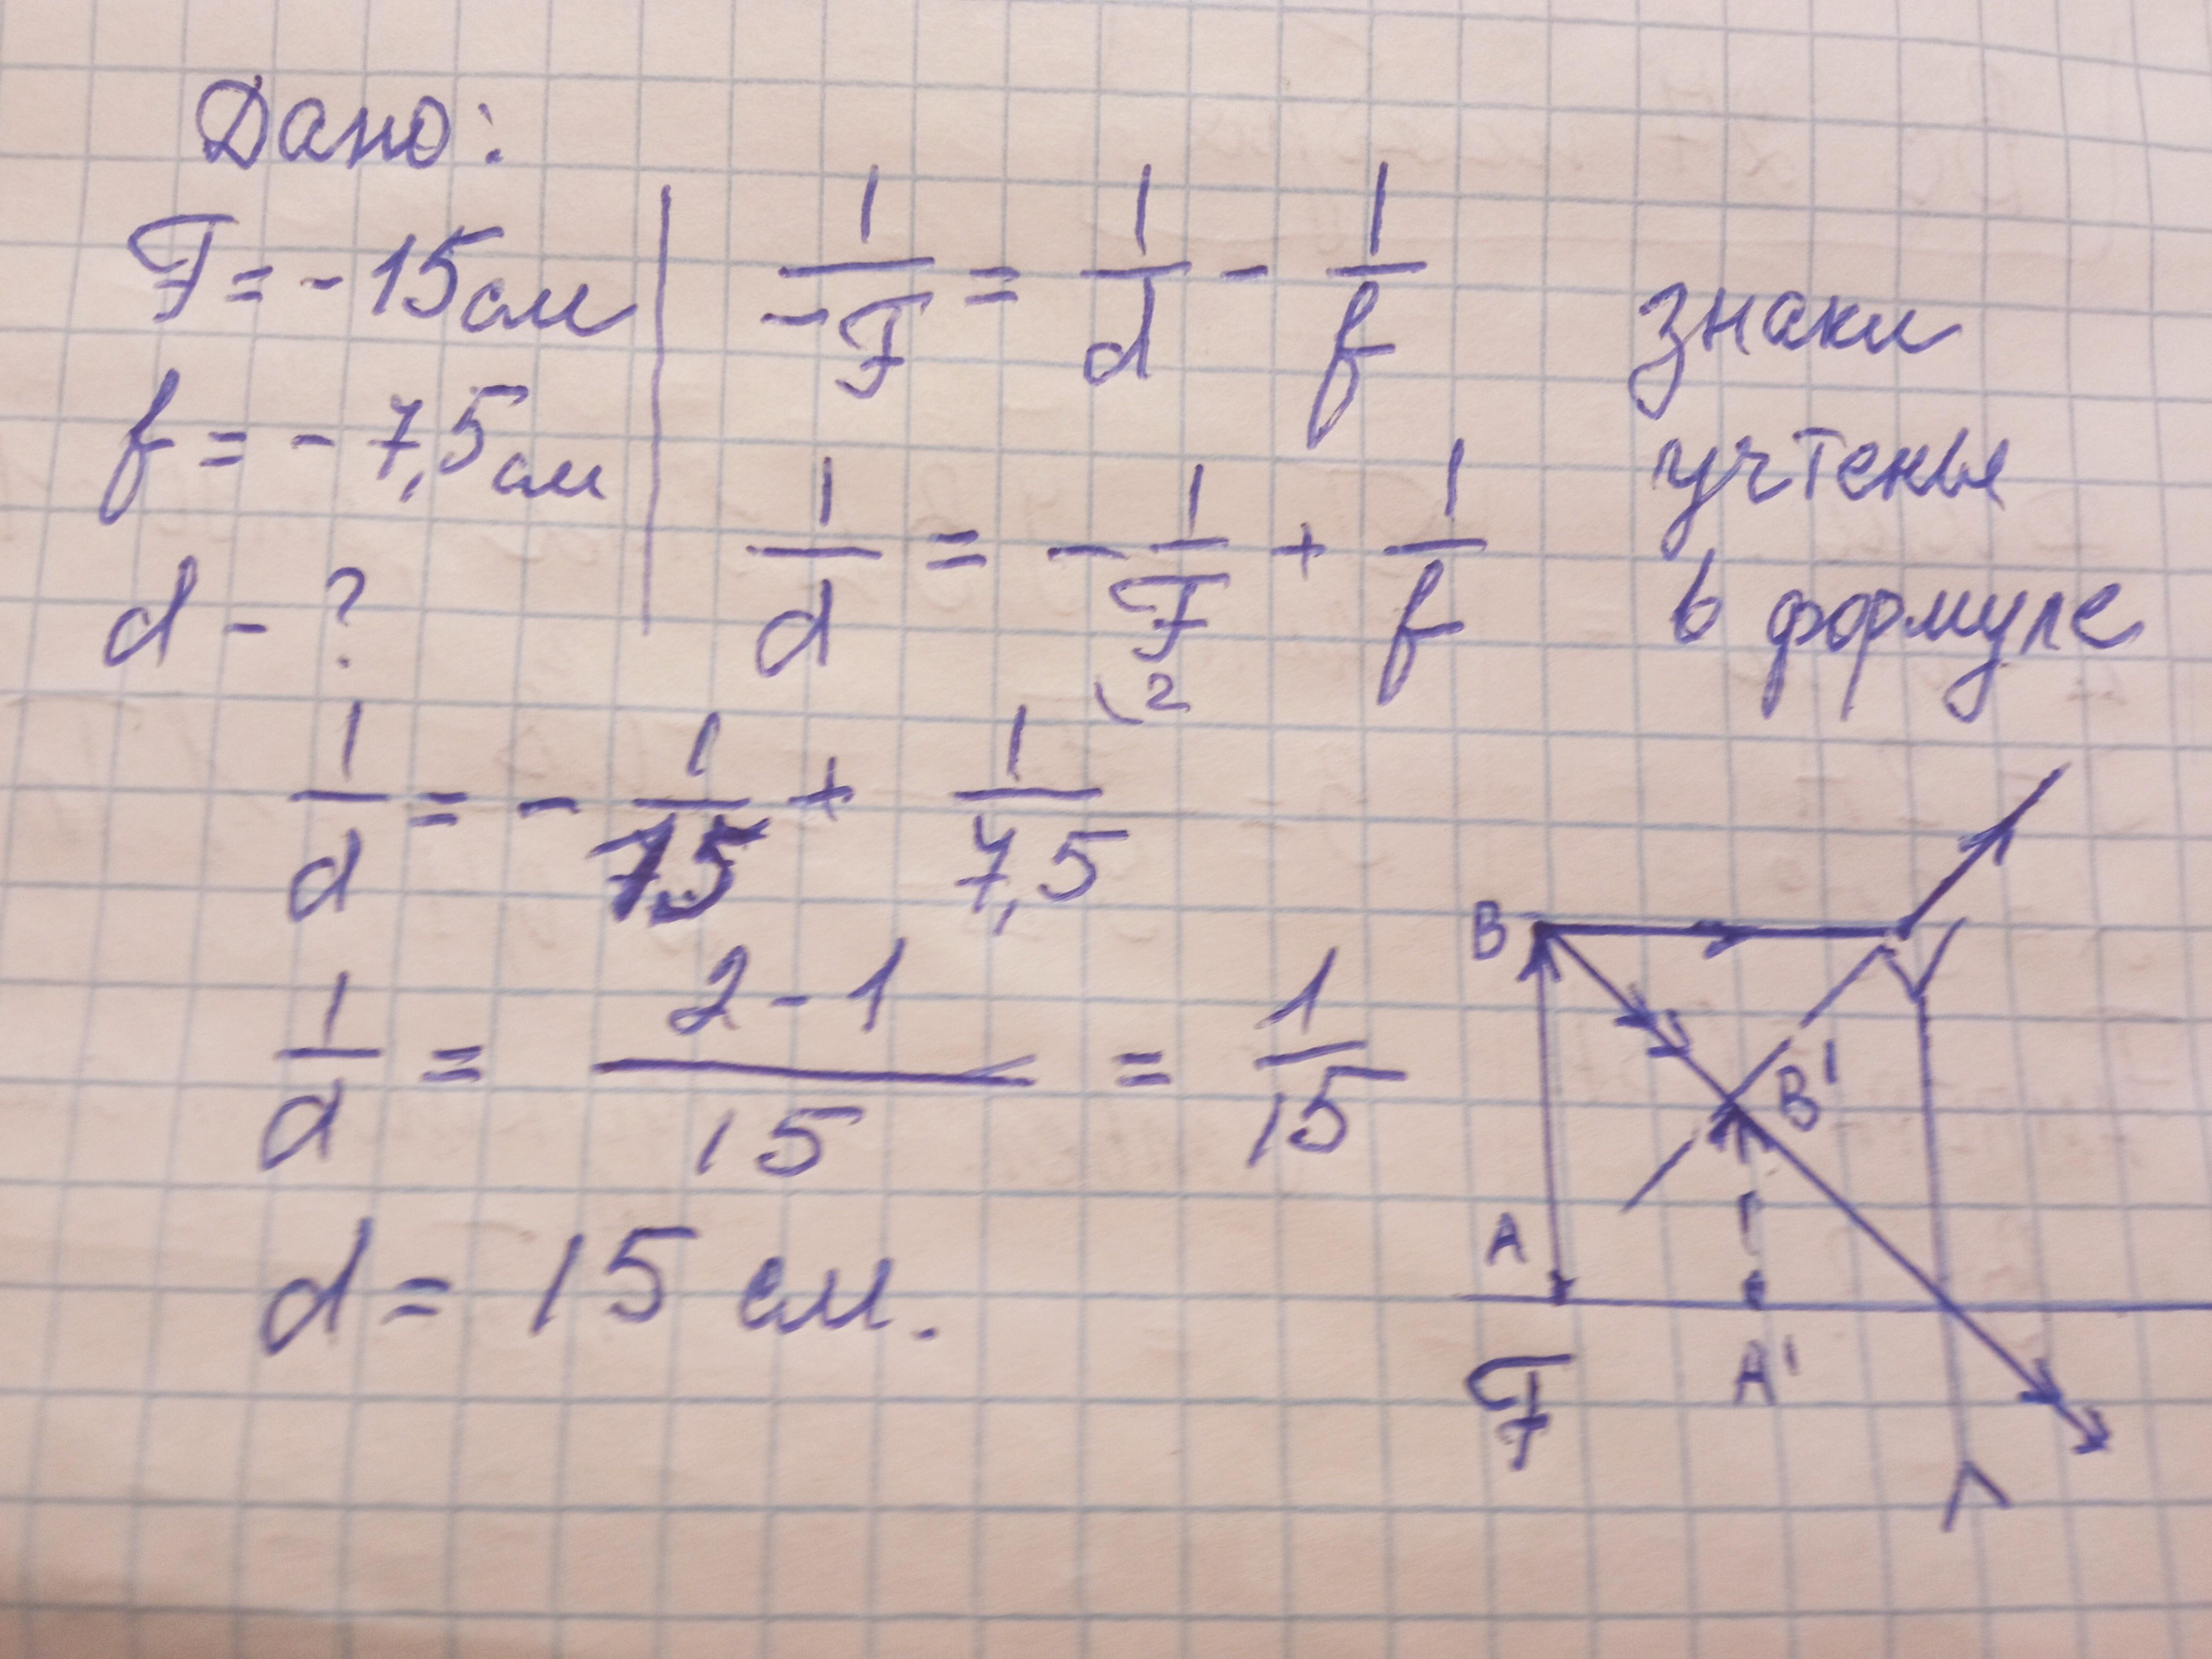 Дано:
F = -15 см
f = -7,5 см
d - ?
1/-F = 1/d - 1/f
1/d = -1/F + 1/f
знаки
учтены
в формуле
1/d = -1/15 + 1/7,5
\2
1/d = (2-1)/15 = 1/15
d = 15 см.
B
B'
A
A'
F